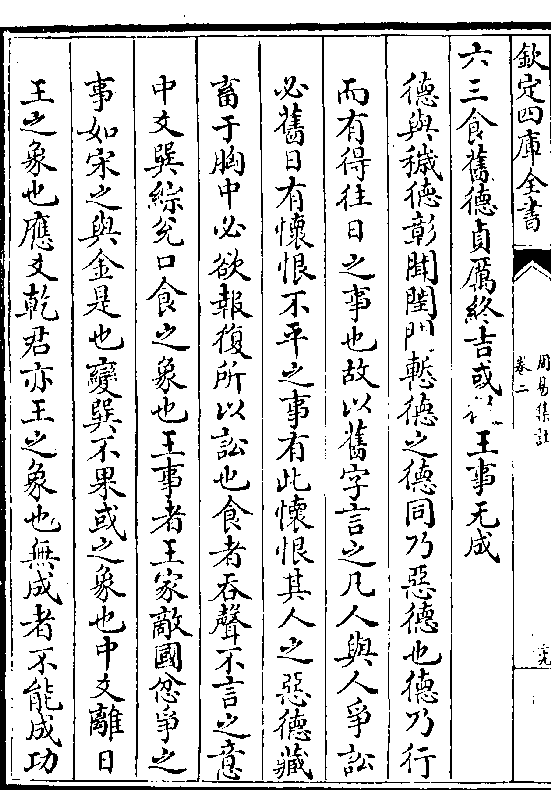 欽定四庫全書
周易集註
卷二
六三食舊德貞厲終吉或從王事无成
德與穢德彰聞閨門慙德之德同乃惡德也德乃行
而有得往日之事也故以舊字言之凡人與人爭訟
必舊日有懷恨不平之事有此懷恨其人之惡德藏
畜于胸中必欲報復所以訟也食者吞聲不言之意
中爻巽綜兌口食之象也王事者王家敵國忿爭之
事如宋之與金是也變巽不果或之象也中爻離日
王之象也應爻乾君亦王之象也無成者不能成功